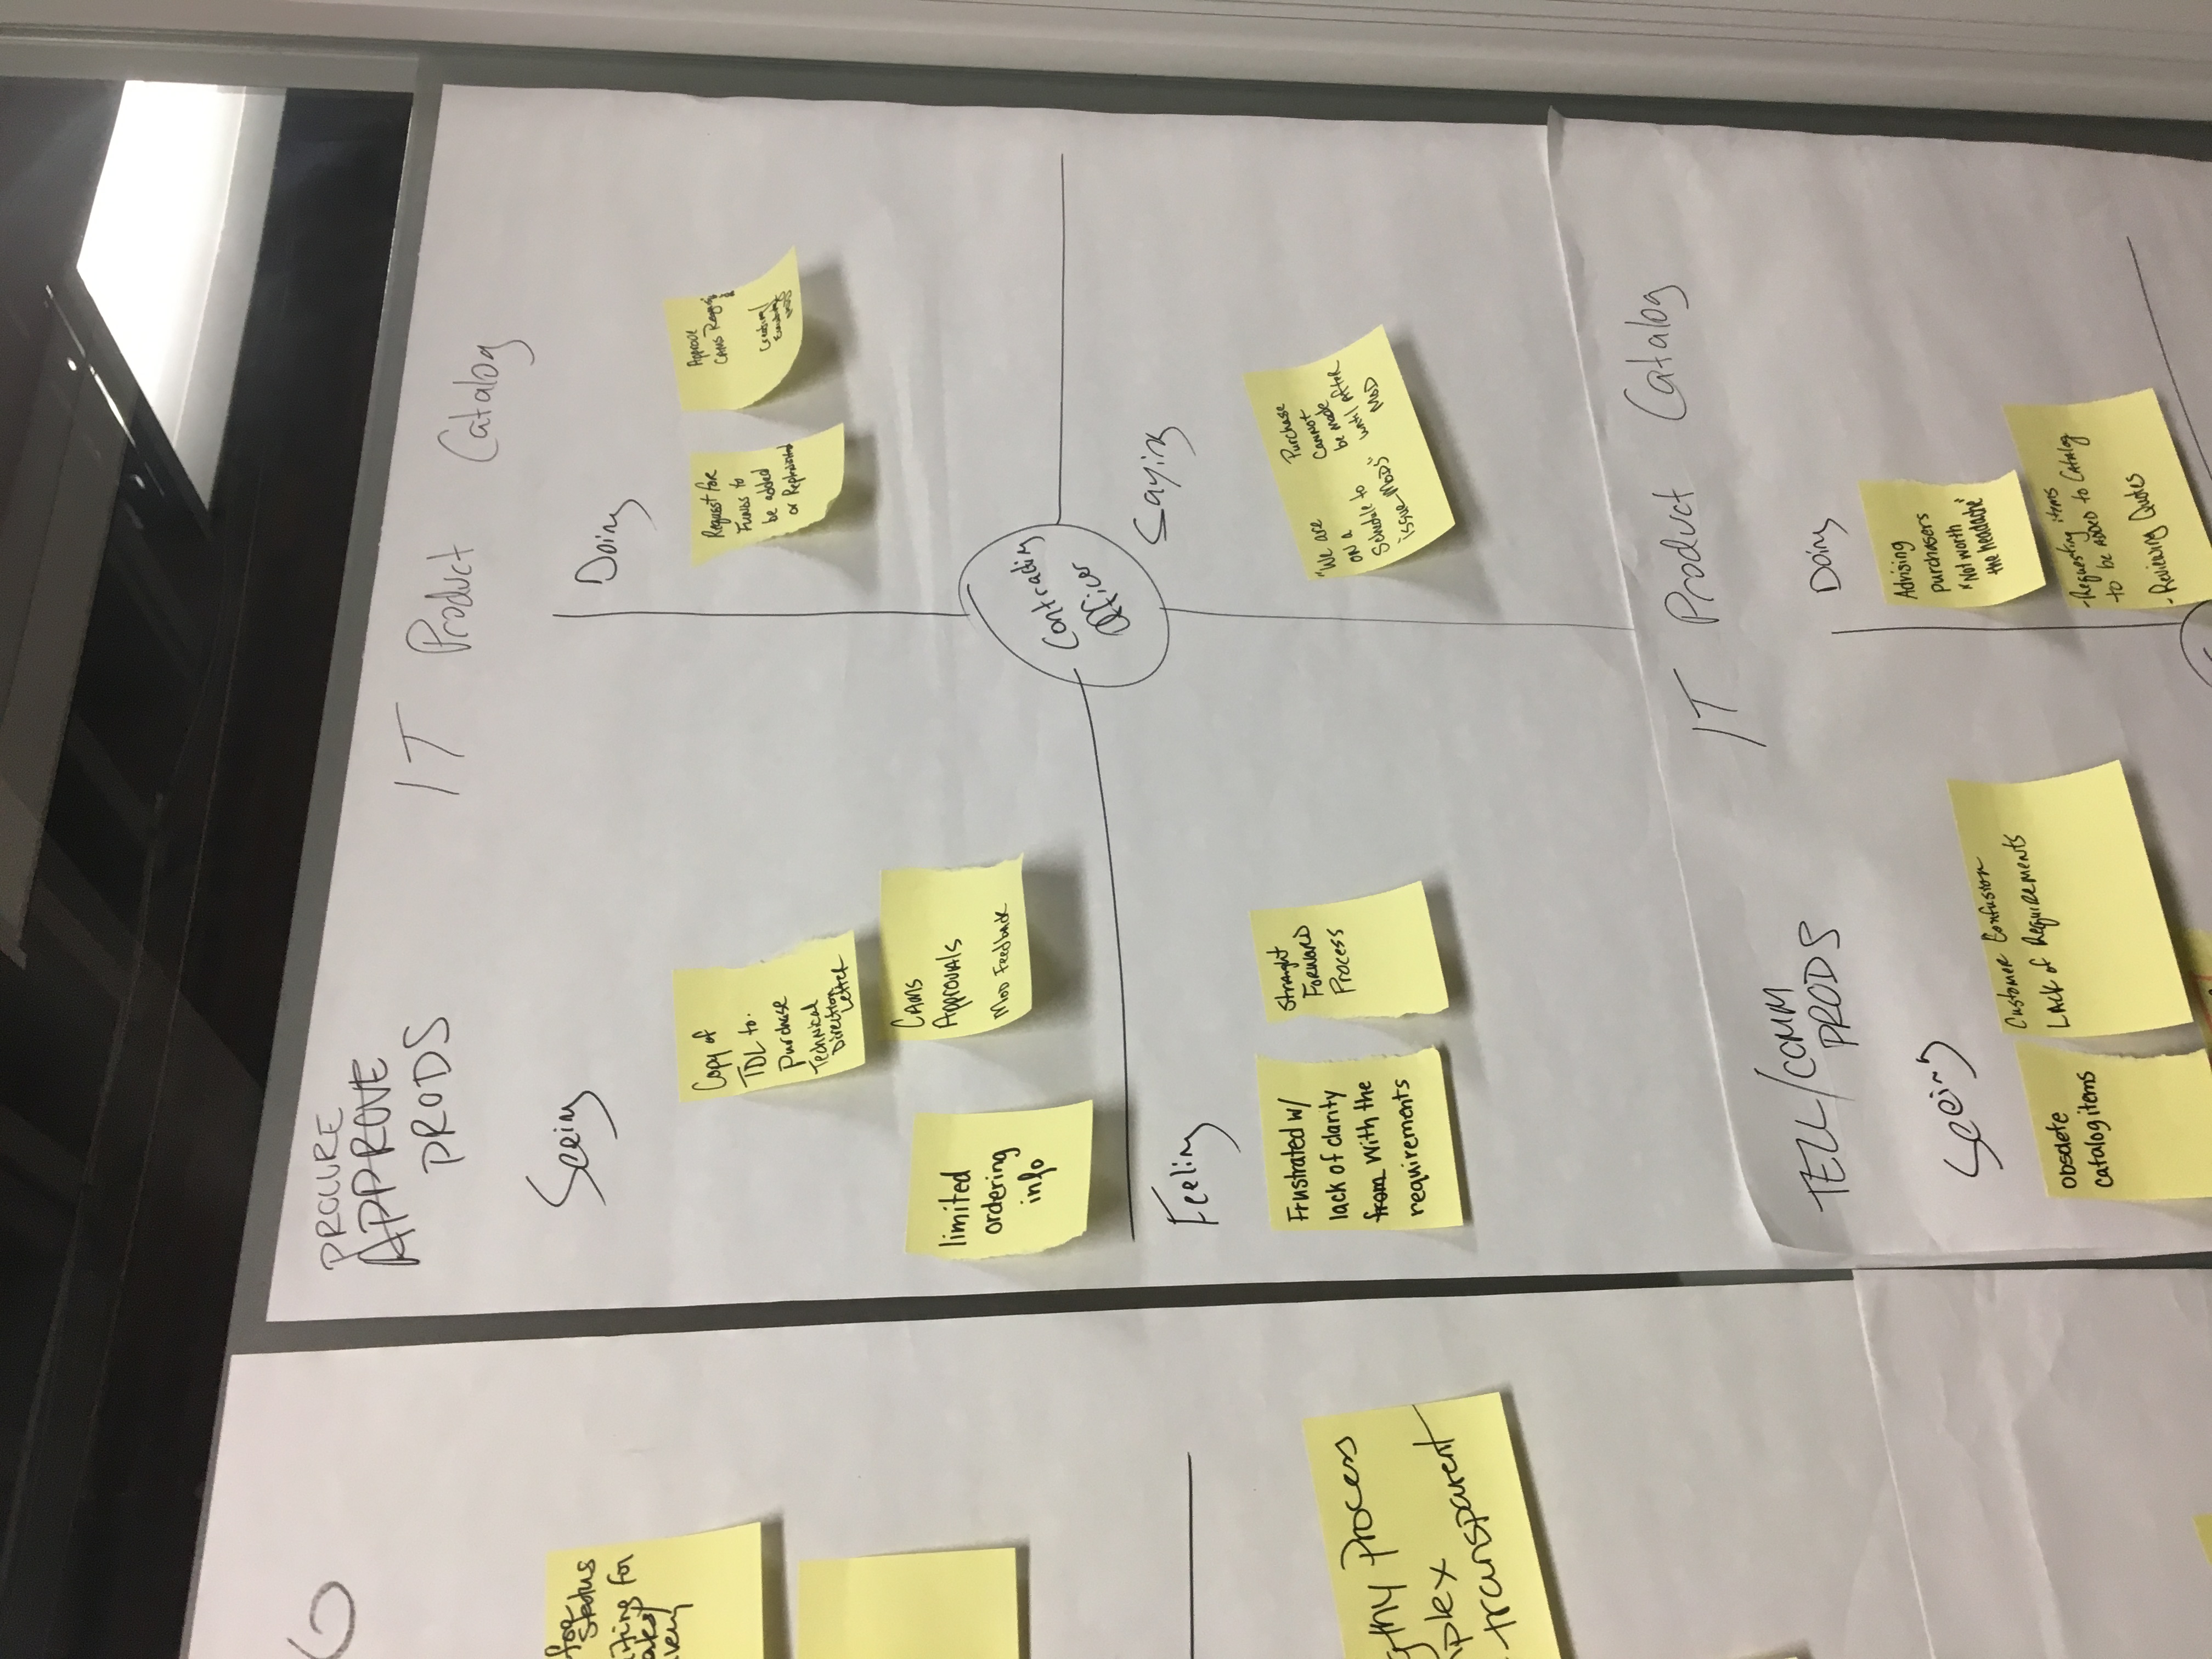 6
for
status
for
gthy Process
plex
transparent
PROCURE
APPROVE
PRODS
IT Product Catalog
Seeing
Copy of
TDL to
Purchase
Technical
Direction
Letter
limited
ordering
info
CAMS
Approvals
Mod Feedback
Doing
Request for
Funds to
be added
or
Approve
CAMS
Creating/
Contracting
Officer
Feeling
Frustrated w/
lack of clarity
from with the
requirements
Straight
Forward
Process
Saying
"We are
on a
Schedule to
issue MODS"
Purchase
Cannot
be made
until After
MOD
IT Product Catalog
TELL/COMM
PRODS
Seeing
obsolete
catalog items
Customer Confusion
Lack of Requirements
Doing
Advising
purchasers
"Not worth
the headache"
-Requesting items
to be ADDED to Catalog
-Reviewing Quotes